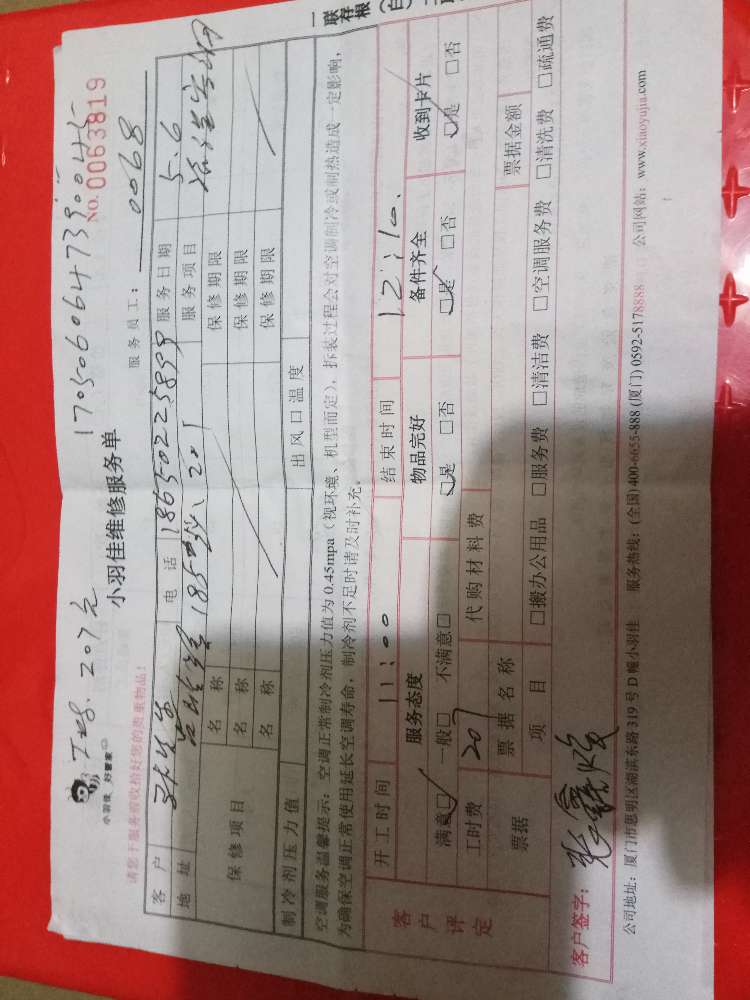 一联存根(白)二联
1705060647390045
207元
小羽佳 好管家
小羽佳维修服务单
No. 0063819
请您于服务前收拾好您的贵重物品!
服务员工: 0068
客户 电话 18650225899 服务日期 5.6
地址 185号 201 服务项目
保修项目
名称 保修期限
名称 保修期限
名称 保修期限
制冷剂压力值 出风口温度
空调服务温馨提示:空调正常制冷剂压力值为0.45mpa(视环境、机型而定),拆装过程会对空调制冷或制热造成一定影响,
为确保空调正常使用延长空调寿命,制冷剂不足时请及时补充。
客户评定
开工时间 11:00 结束时间 12:10.
服务态度 物品完好 备件齐全 收到卡片
满意☑ 一般□ 不满意□ ☑是 □否 ☑是 □否 ☑是 □否
工时费 207 代购材料费
票据 票据名称 票据金额
项目 □搬办公用品 □服务费 □清洁费 □空调服务费 □清洗费 □疏通费
客户签字: 张鑫焱
公司地址:厦门市思明区湖滨东路319号D幢小羽佳 服务热线:(全国)400-6655-888 (厦门) 0592-5178888 公司网站:www.xiaoyujia.com